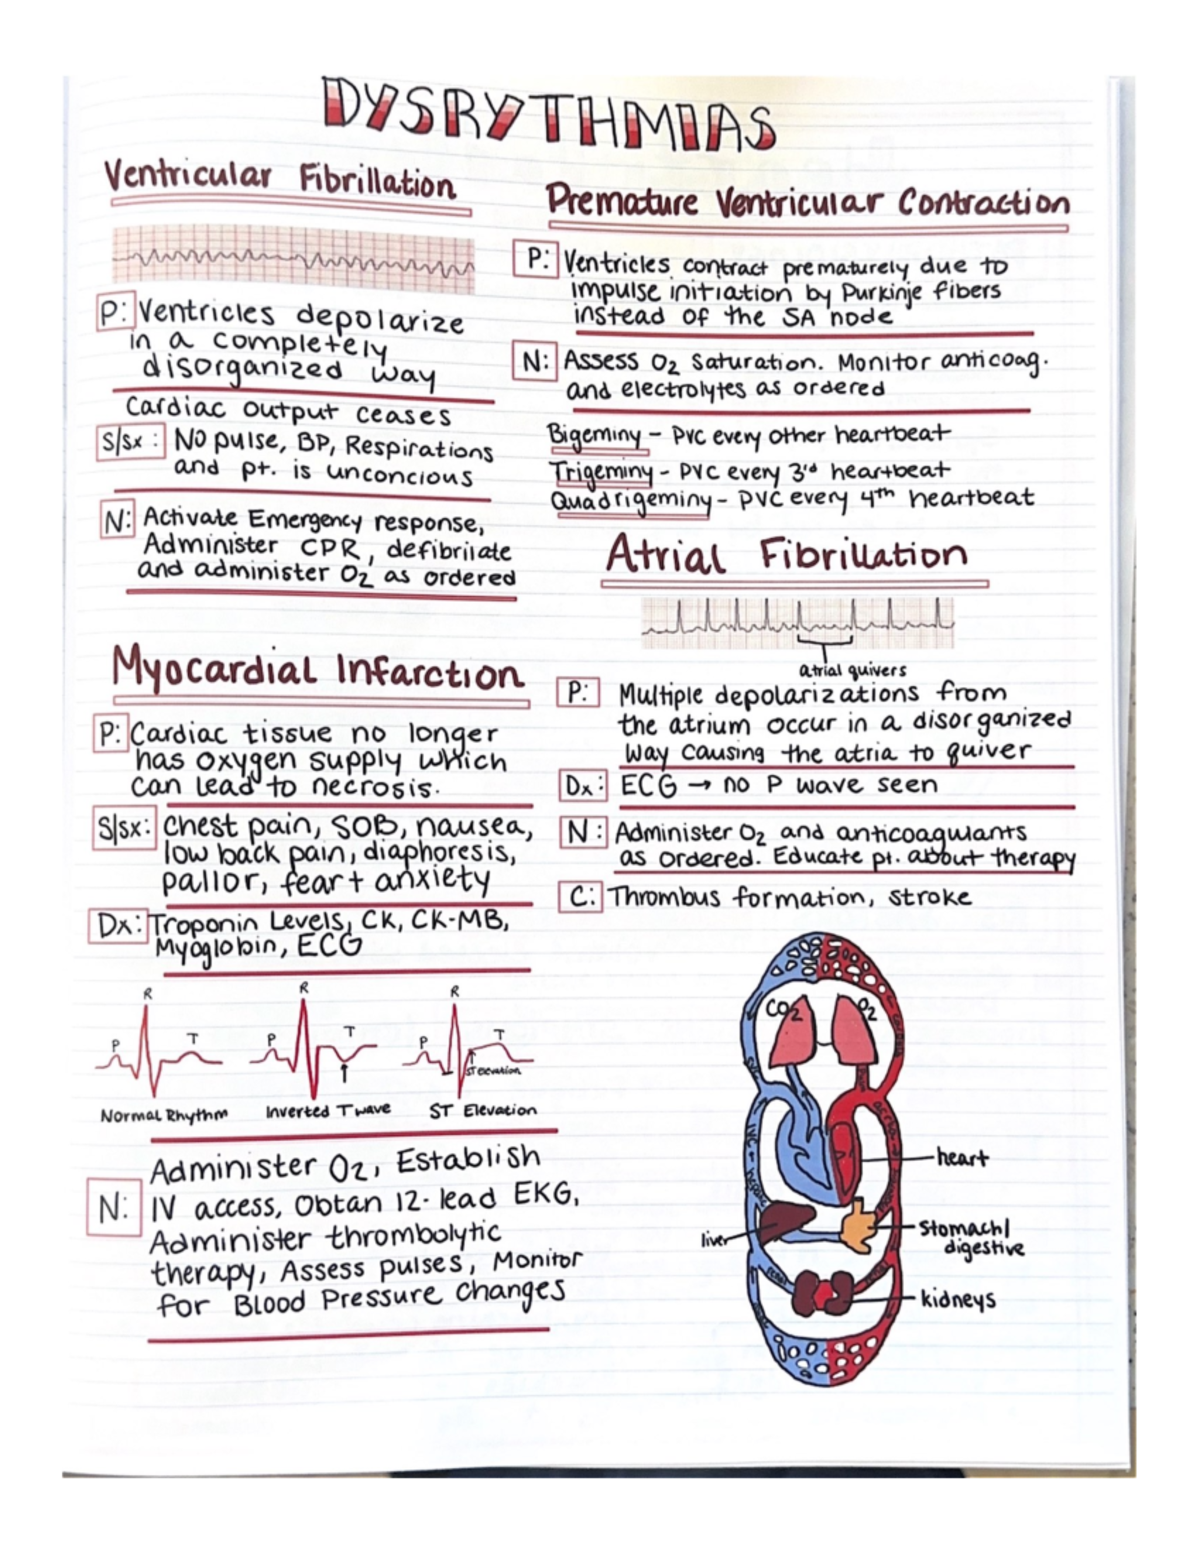 DYSRYTHMIAS
Ventricular Fibrillation
P: Ventricles depolarize
in a completely
disorganized way
Cardiac output ceases
S/sx: No pulse, BP, Respirations
and pt. is unconcious
N: Activate Emergency response,
Administer CPR, defibrilate
and administer O2 as ordered
Myocardial Infarction
P: Cardiac tissue no longer
has oxygen supply which
can lead to necrosis.
S/sx: Chest pain, SOB, nausea,
low back pain, diaphoresis,
pallor, fear + anxiety
Dx: Troponin Levels, CK, CK-MB,
Myoglobin, ECG
R R R
P T P T P T
ST Elevation
Normal Rhythm Inverted T wave ST Elevation
Administer O2, Establish
N: IV access, Obtan 12-lead EKG,
Administer thrombolytic
therapy, Assess pulses, Monitor
for Blood Pressure changes
Premature Ventricular Contraction
P: Ventricles contract prematurely due to
impulse initiation by Purkinje fibers
instead of the SA node
N: Assess O2 saturation. Monitor anticoag.
and electrolytes as ordered
Bigeminy - PVC every other heartbeat
Trigeminy - PVC every 3rd heartbeat
Quadrigeminy - PVC every 4th heartbeat
Atrial Fibrillation
atrial quivers
P: Multiple depolarizations from
the atrium occur in a disorganized
way causing the atria to quiver
Dx: ECG → no P wave seen
N: Administer O2 and anticoagulants
as ordered. Educate pt. about therapy
C: Thrombus formation, stroke
CO2 O2
heart
liver
stomach/
digestive
kidneys